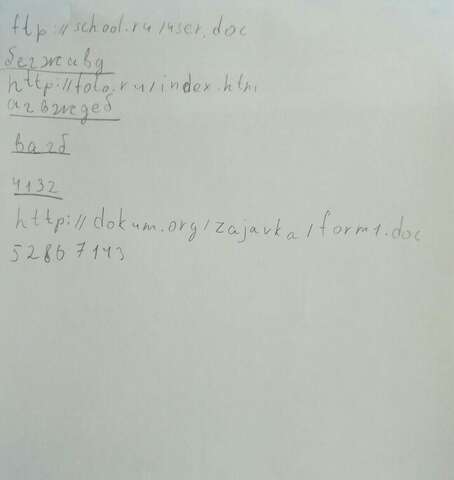 ftp://school.ru/user.doc
бегжавд
http://foto.ru/index.htm
агвждеб
вагб
4132
http://dokum.org/zajavka/form1.doc
52867143